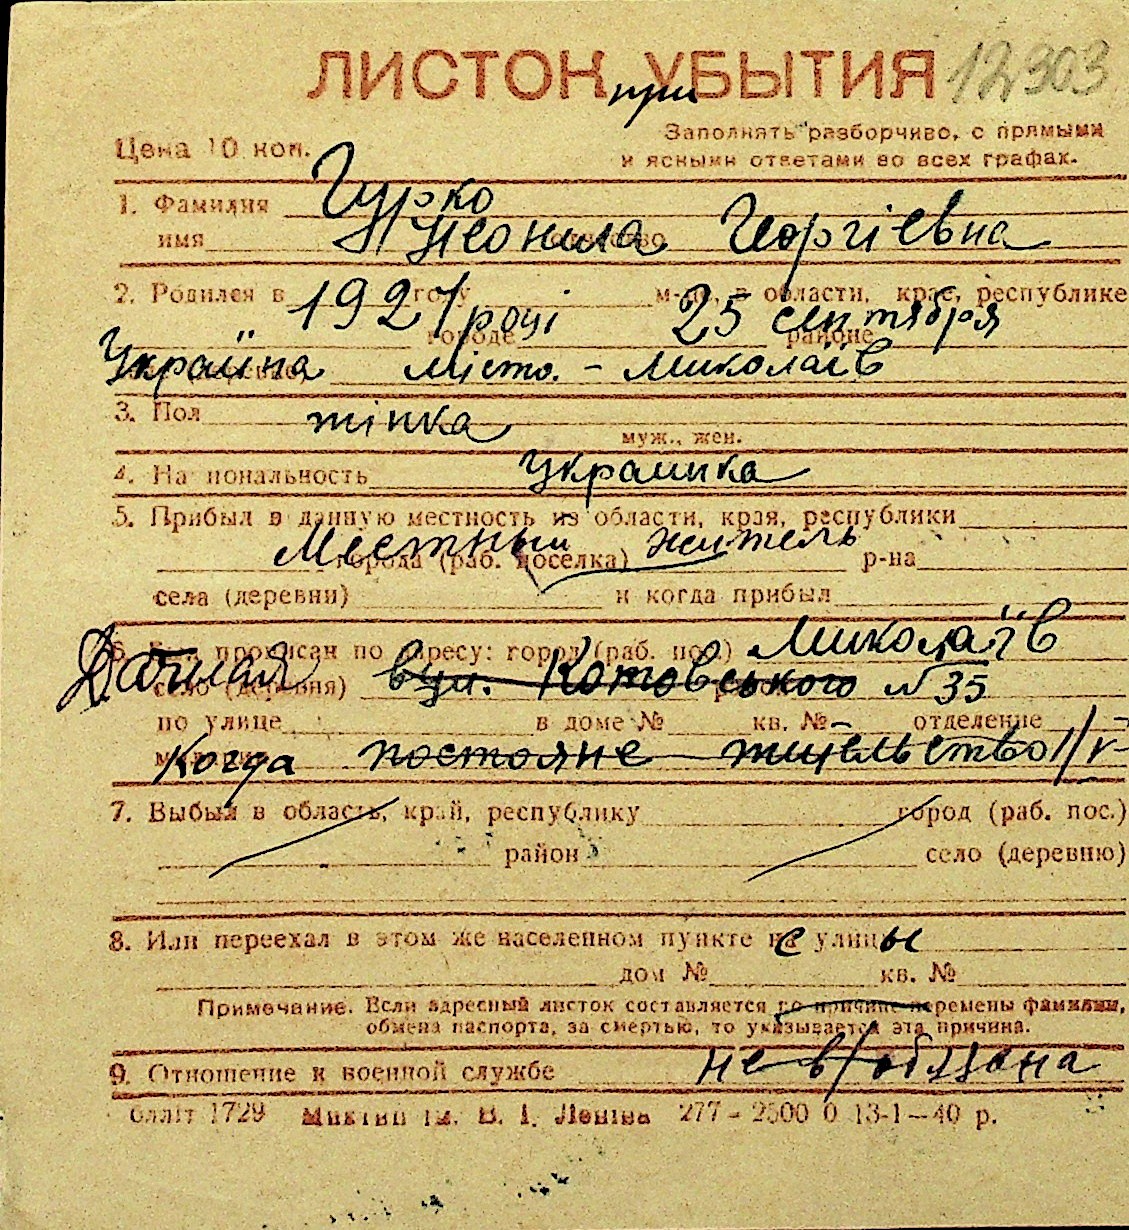 ЛИСТОК УБЫТИЯ 12303
при
Цена 10 коп.
Заполнять разборчиво, с прямыми
и ясными ответами во всех графах.
1. Фамилия Гурко
имя Неонила отчество Георгієвна
2. Родился в 1927 году м-це, в области, крае, республике
році 25 сентября
городе районе
Україна місто. - Миколаїв
3. Пол жінка
муж., жен.
4. Национальность Украинка
5. Прибыл в данную местность из области, края, республики
Местный житель
города (раб. поселка) р-на
села (деревни) и когда прибыл
6. Был прописан по адресу: город (раб. пос.) Миколаїв
Дачная село (деревня) вул. Котовського №35
по улице в доме № кв. № отделение
Когда постояне жительство
7. Выбыл в область, край, республику город (раб. пос.)
район село (деревню)
8. Или переехал в этом же населенном пункте с улицы
дом № кв. №
Примечание. Если адресный листок составляется по причине перемены фамилии,
обмена паспорта, за смертью, то указывается эта причина.
9. Отношение к военной службе не в/обязана
обліт 1729 ім. В. І. Леніна 277 - 2500 0 13-1-40 р.